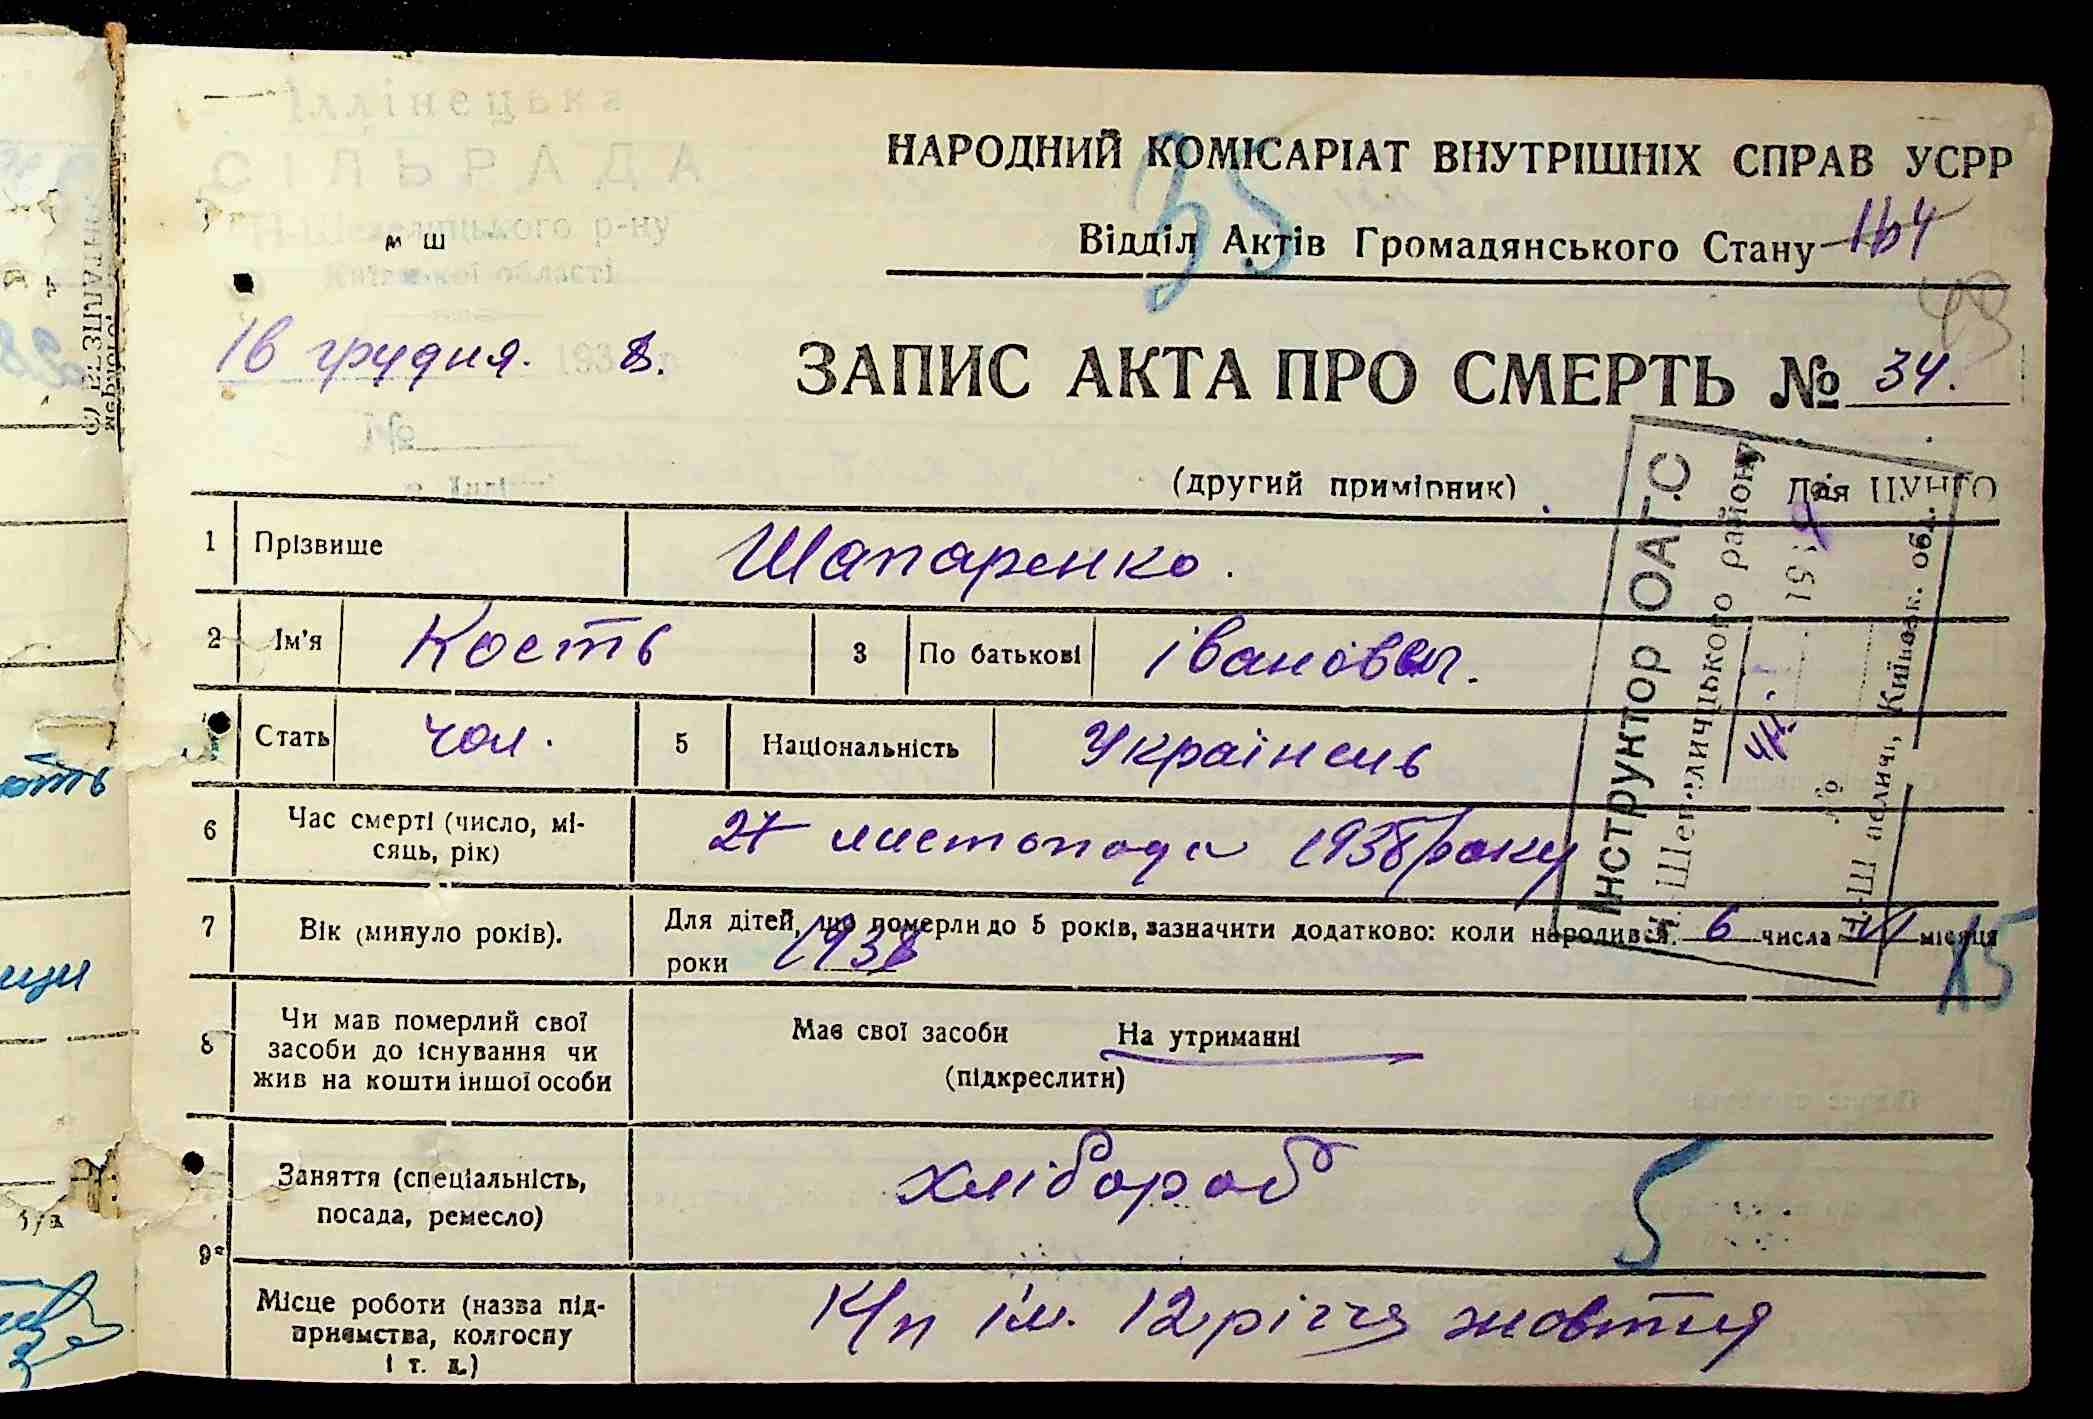 Іллінецька
СІЛЬРАДА
Н-Шепелицького р-ну
Київської області
м ш
16 грудня. 1938.
№
НАРОДНИЙ КОМІСАРІАТ ВНУТРІШНІХ СПРАВ УСРР
35
Відділ Актів Громадянського Стану 164
43
ЗАПИС АКТА ПРО СМЕРТЬ № 34.
(другий примірник)
Для ЦУНГО
Інструктор ОАГС
Н. Шепелицького району
193
№
Н-Шепеличі, Київськ. обл.
1 Прізвище Шапаренко.
2 Ім'я Кость 3 По батькові івановвич.
Стать чол. 5 Національність Українець
6 Час смерті (число, мі-
сяць, рік) 27 листопада 1938 року
7 Вік (минуло років). Для дітей, що померли до 5 років, зазначити додатково: коли народився. 6 числа місяця
роки 1938
15
8 Чи мав померлий свої
засоби до існування чи
жив на кошти іншої особи
Має свої засоби На утриманні
(підкреслити)
Заняття (спеціальність,
посада, ремесло) хлібороб
5
9
Місце роботи (назва під-
приємства, колгоспу
і т. д.) К/п ім. 12 річчя жовтня